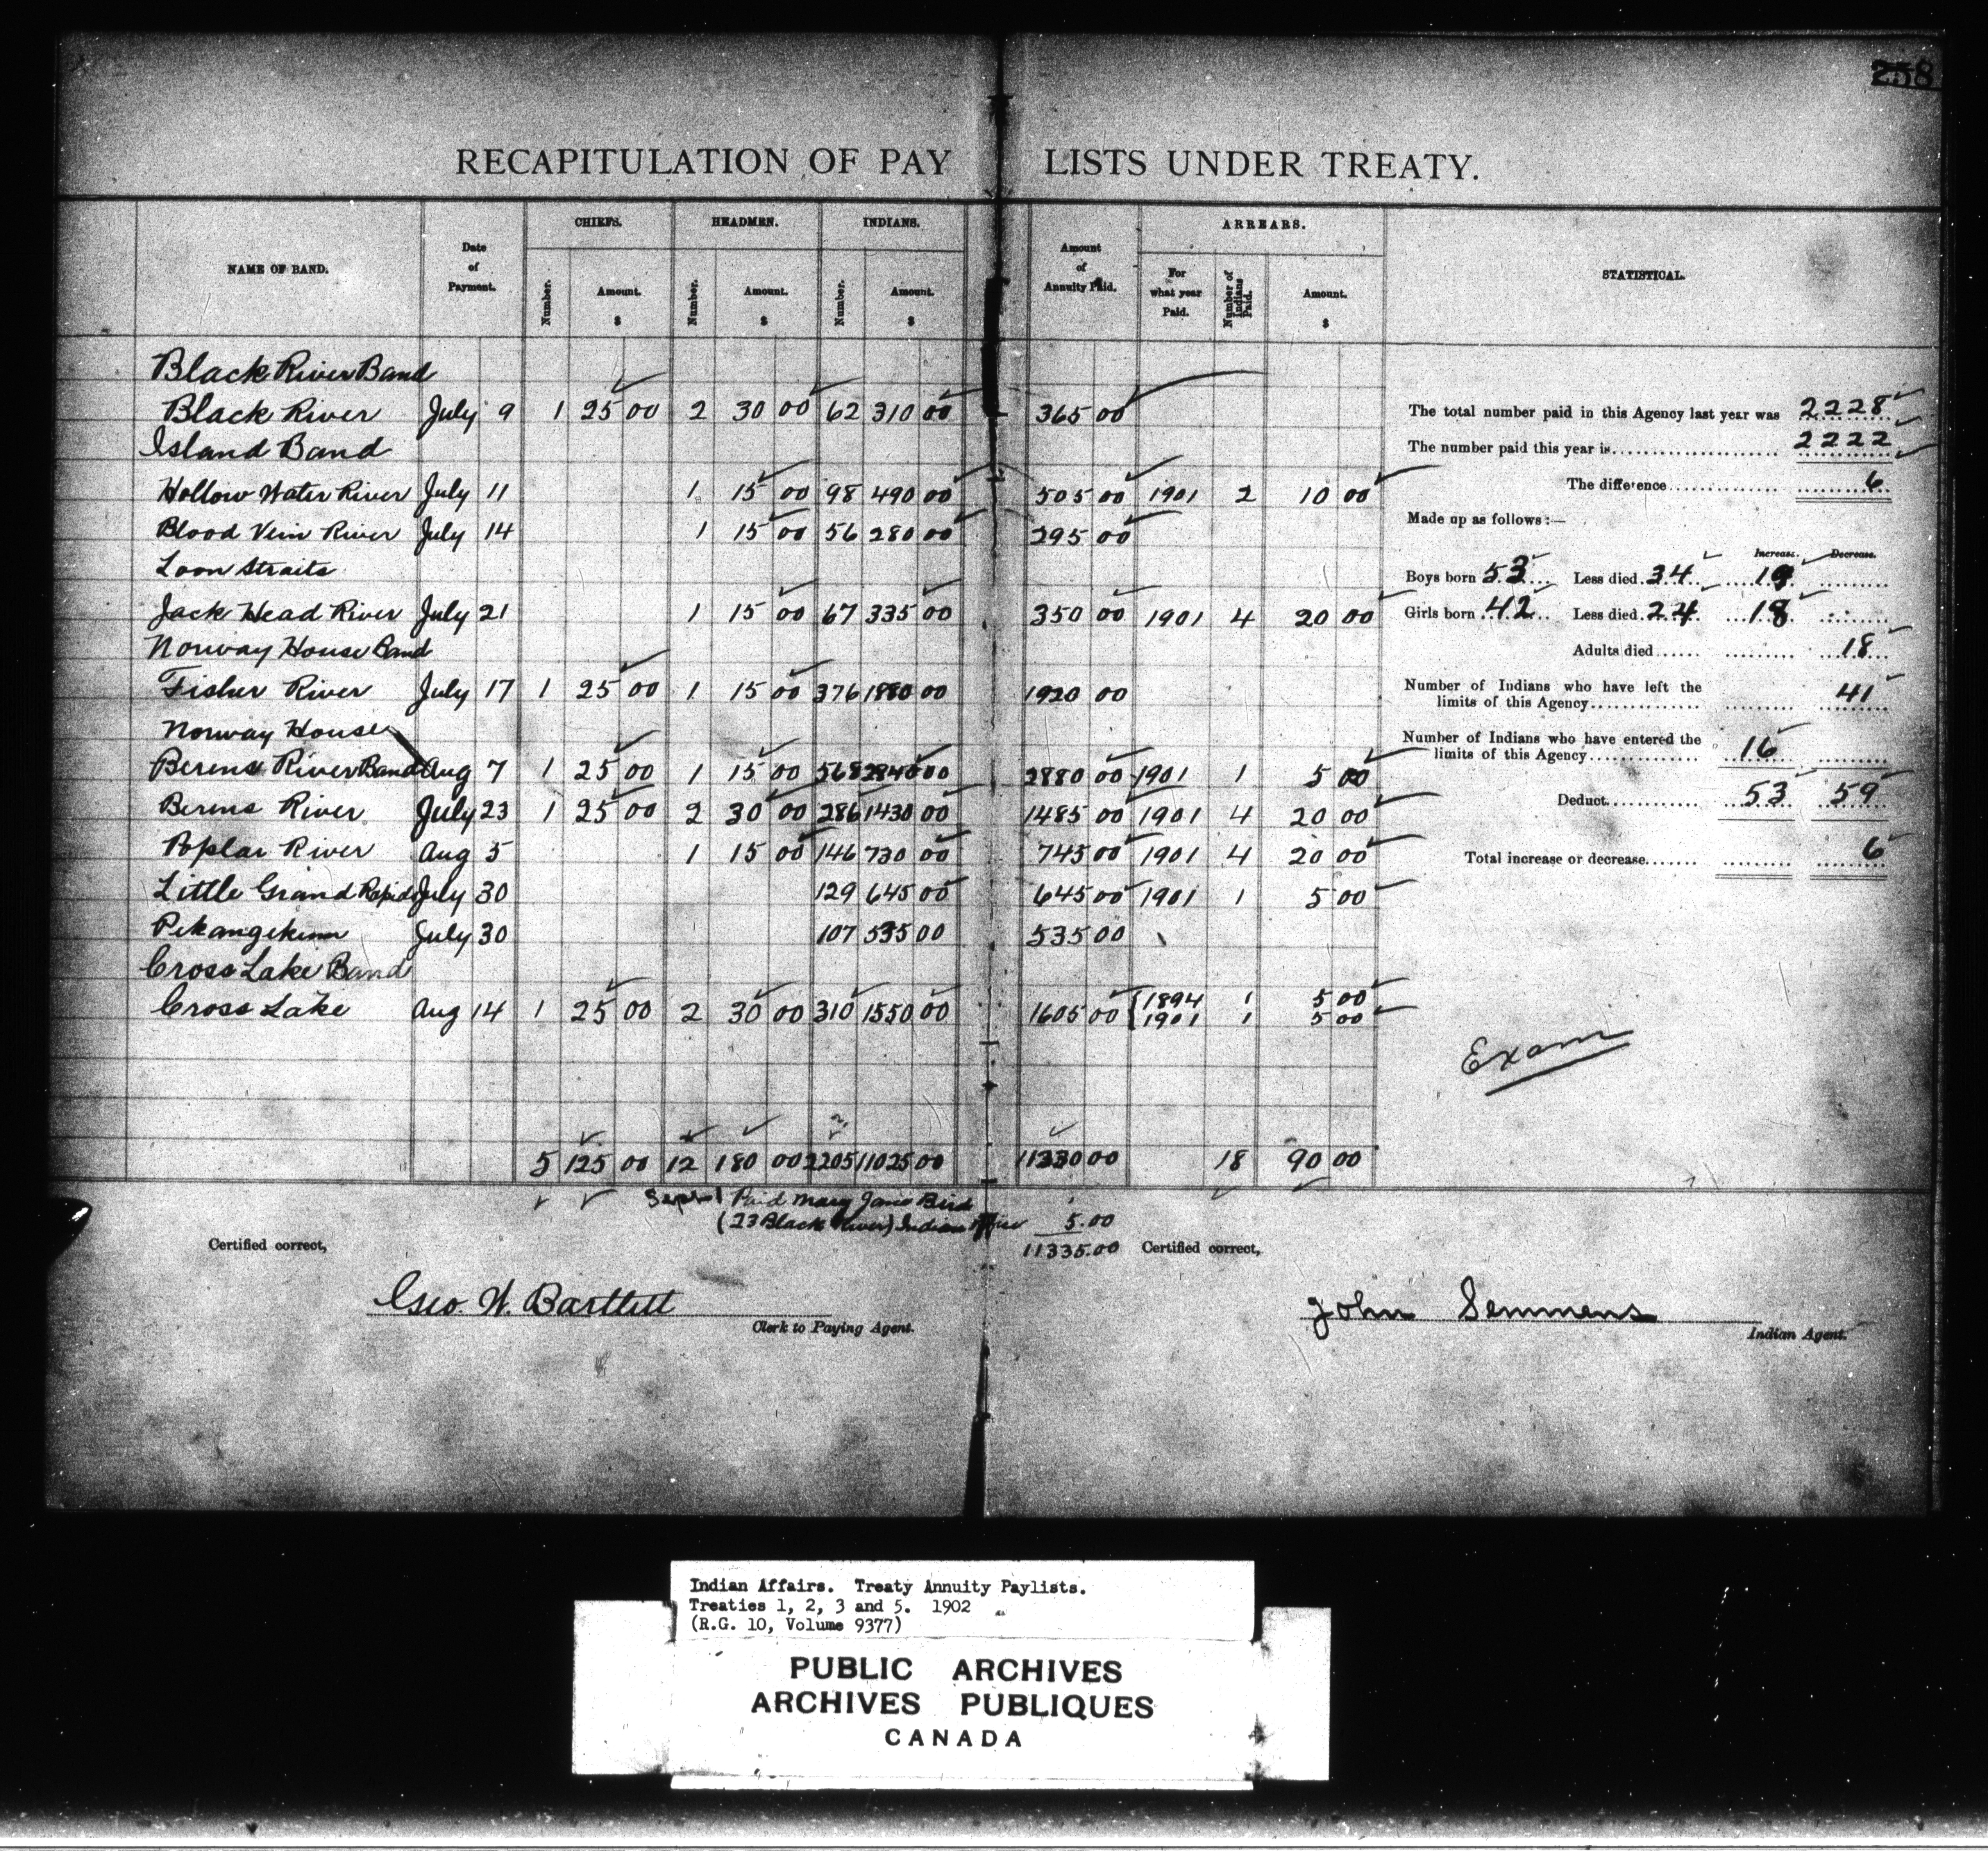 258
RECAPITULATION OF PAY LISTS UNDER TREATY.
NAME OF BAND. Date of Payment. CHIEFS. Number. Amount. $ HEADMEN. Number. Amount. $ INDIANS. Number. Amount. $ Amount of Annuity Paid. ARREARS. For what year Paid. Number of Indians Paid. Amount. $ STATISTICAL.
Black River Band
Black River July 9 1 25 00 2 30 00 62 310 00 365 00
Island Band
Hollow Water River July 11 1 15 00 98 490 00 505 00 1901 2 10 00
Blood Vein River July 14 1 15 00 56 280 00 295 00
Loon Straits
Jack Head River July 21 1 15 00 67 335 00 350 00 1901 4 20 00
Norway House Band
Fisher River July 17 1 25 00 1 15 00 376 1880 00 1920 00
Norway House
Berens River Band Aug 7 1 25 00 1 15 00 568 2840 00 2880 00 1901 1 5 00
Berens River July 23 1 25 00 2 30 00 286 1430 00 1485 00 1901 4 20 00
Poplar River Aug 5 1 15 00 146 730 00 745 00 1901 4 20 00
Little Grand Rapids July 30 129 645 00 645 00 1901 1 5 00
Pekangekum July 30 107 535 00 535 00
Cross Lake Band
Cross Lake Aug 14 1 25 00 2 30 00 310 1550 00 1605 00 1894 1 5 00
1901 1 5 00
5 125 00 12 180 00 2205 11025 00 11330 00 18 90 00
Sept 1 Paid Mary Jane Bird
(23 Black River) Indian Office 5.00
11335.00
The total number paid in this Agency last year was 2228
The number paid this year is 2222
The difference 6
Made up as follows:—
Increase. Decrease.
Boys born 53 Less died 34 19
Girls born 42 Less died 24 18
Adults died 18
Number of Indians who have left the
limits of this Agency 41
Number of Indians who have entered the
limits of this Agency 16
Deduct 53 59
Total increase or decrease 6
Exam
Certified correct,
Geo. W. Bartlett
Clerk to Paying Agent.
Certified correct,
John Semmens
Indian Agent.
Indian Affairs. Treaty Annuity Paylists.
Treaties 1, 2, 3 and 5. 1902
(R.G. 10, Volume 9377)
PUBLIC ARCHIVES
ARCHIVES PUBLIQUES
CANADA